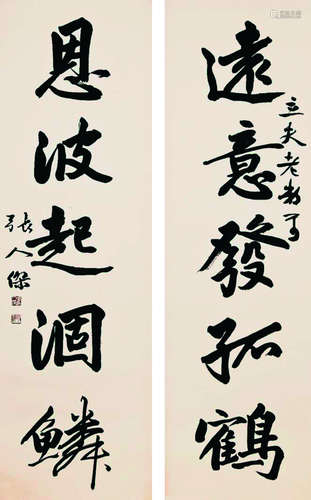 遠意發孤鶴
立夫老弟
恩波起涸鱗
張人傑